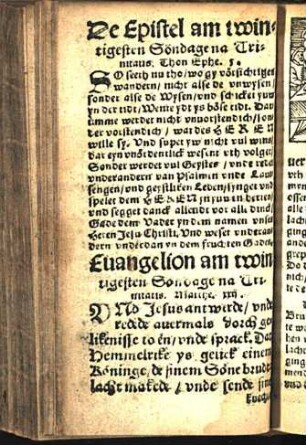 De Epistel am twin-
tigesten Söndage na Tri-
nitatis. Thon Ephe. 5.
SO seeth nu tho / wo gy vörsichtigen
wandern / nicht alse de unwysen /
sonder alse de Wysen / und schicket juw
yn der tidt / Wente ydt ys böse tidt. Dar-
umme werdet nicht unvorstendich / son-
der vorstendich / wat des HEREN
wille sy. Und supet yw nicht vul wins /
dar eyn unördentlick wesent uth volget /
Sonder werdet vul Geystes / unde redet
underandern van Psalmen unde Lau-
sengen / unde geystliken Leden / singet und
spelet dem HEREN jn juwen herten /
und segget danck alletidt vor all dinck /
Gade dem Vader yn dem namen unses
Heren Jesu Christi. Und weset underan-
dern underdan yn dem fruchten Gades.
Euangelion am twin
tigesten Söndage na Tri-
nitatis. Matthe. xxij.
UNd Jesus antwerde / unde
redde auermals dorch ge-
likenisse to en / unde sprack. Dat
Hemmelrike ys gelick einem
Köninge / de sinem Söne brudt-
lacht makede / unde sende sine